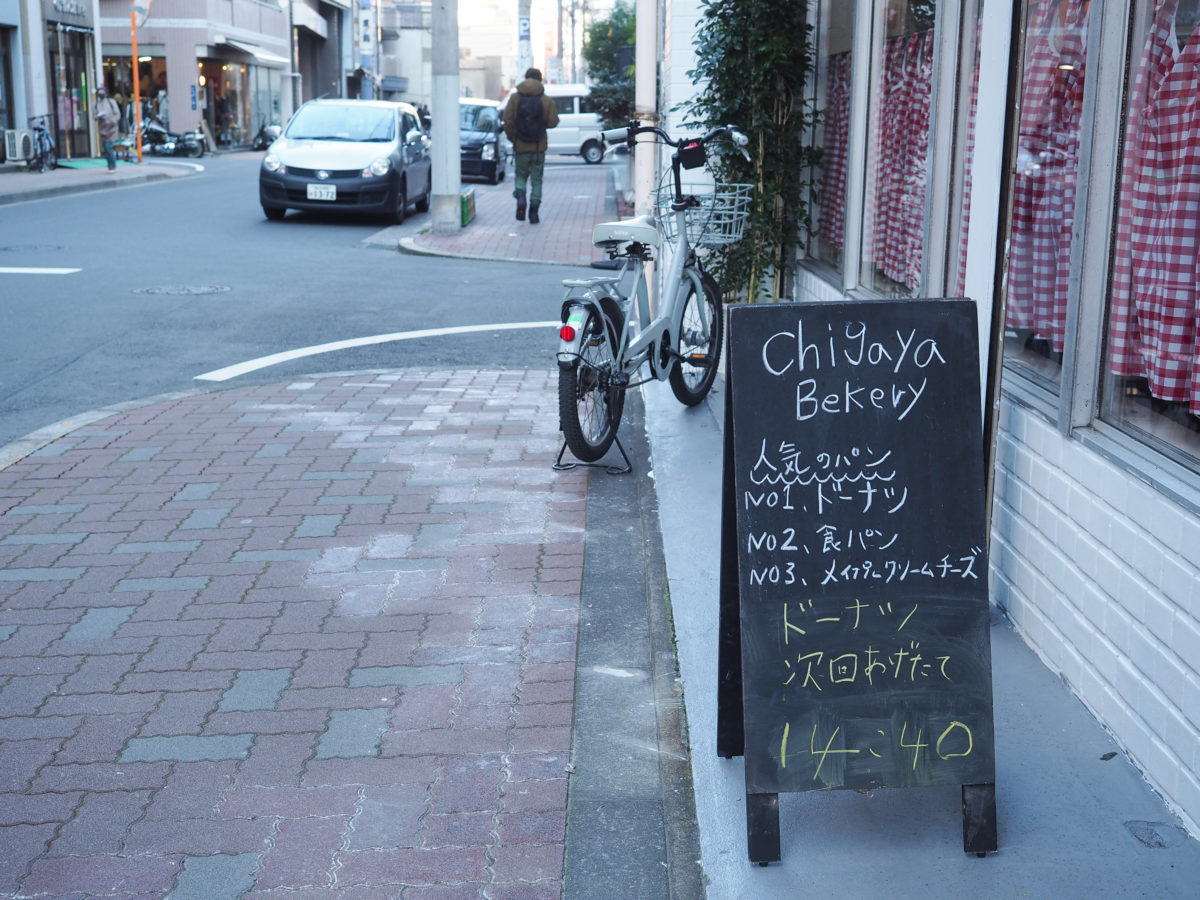 Chigaya
Bekery
人気のパン
NO1、ドーナツ
NO2、食パン
NO3、メイプルクリームチーズ
ドーナツ
次回あげたて
14:40